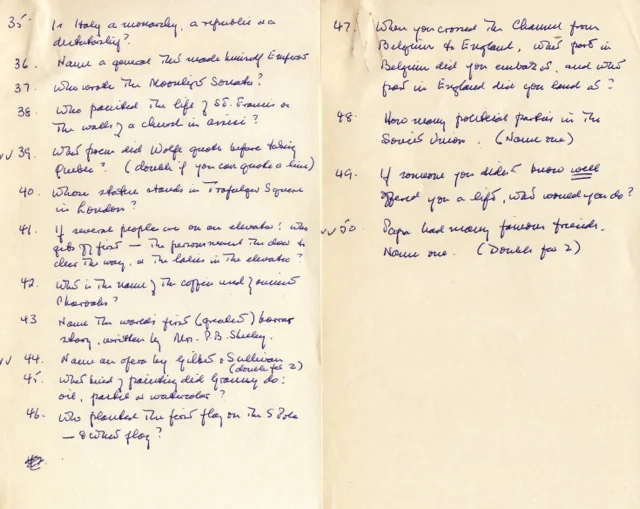 35. Is Italy a monarchy, a republic or a
dictatorship?
36. Name a general that made himself Emperor
37. Who wrote the Moonlight Sonata?
38. Who painted the life of St. Francis on
the walls of a church in Assisi?
vv 39. What poem did Wolfe quote before taking
Quebec? (double if you can quote a line)
40. Whose statue stands in Trafalgar Square
in London?
41. If several people are on an elevator: who
gets off first — the persons nearest the door to
clear the way, or the ladies in the elevator?
42. What is the name of the coffin used for ancient
Pharoahs?
43 Name the world's first (greatest) horror
story, written by Mrs. P.B. Shelley.
vv 44. Name an opera by Gilbert & Sullivan
(double for 2)
45. What kind of painting did Granny do:
oil, pastel or watercolor?
46. Who planted the first flag on the S Pole
— & what flag?
47. When you crossed the Channel from
Belgium to England, what port in
Belgium did you embark at, and what
port in England did you land at?
48. How many political parties in the
Soviet Union. (Name one)
49. If someone you didn't know well
offered you a lift, what would you do?
vv 50. Papa had many famous friends.
Name one. (Double for 2)